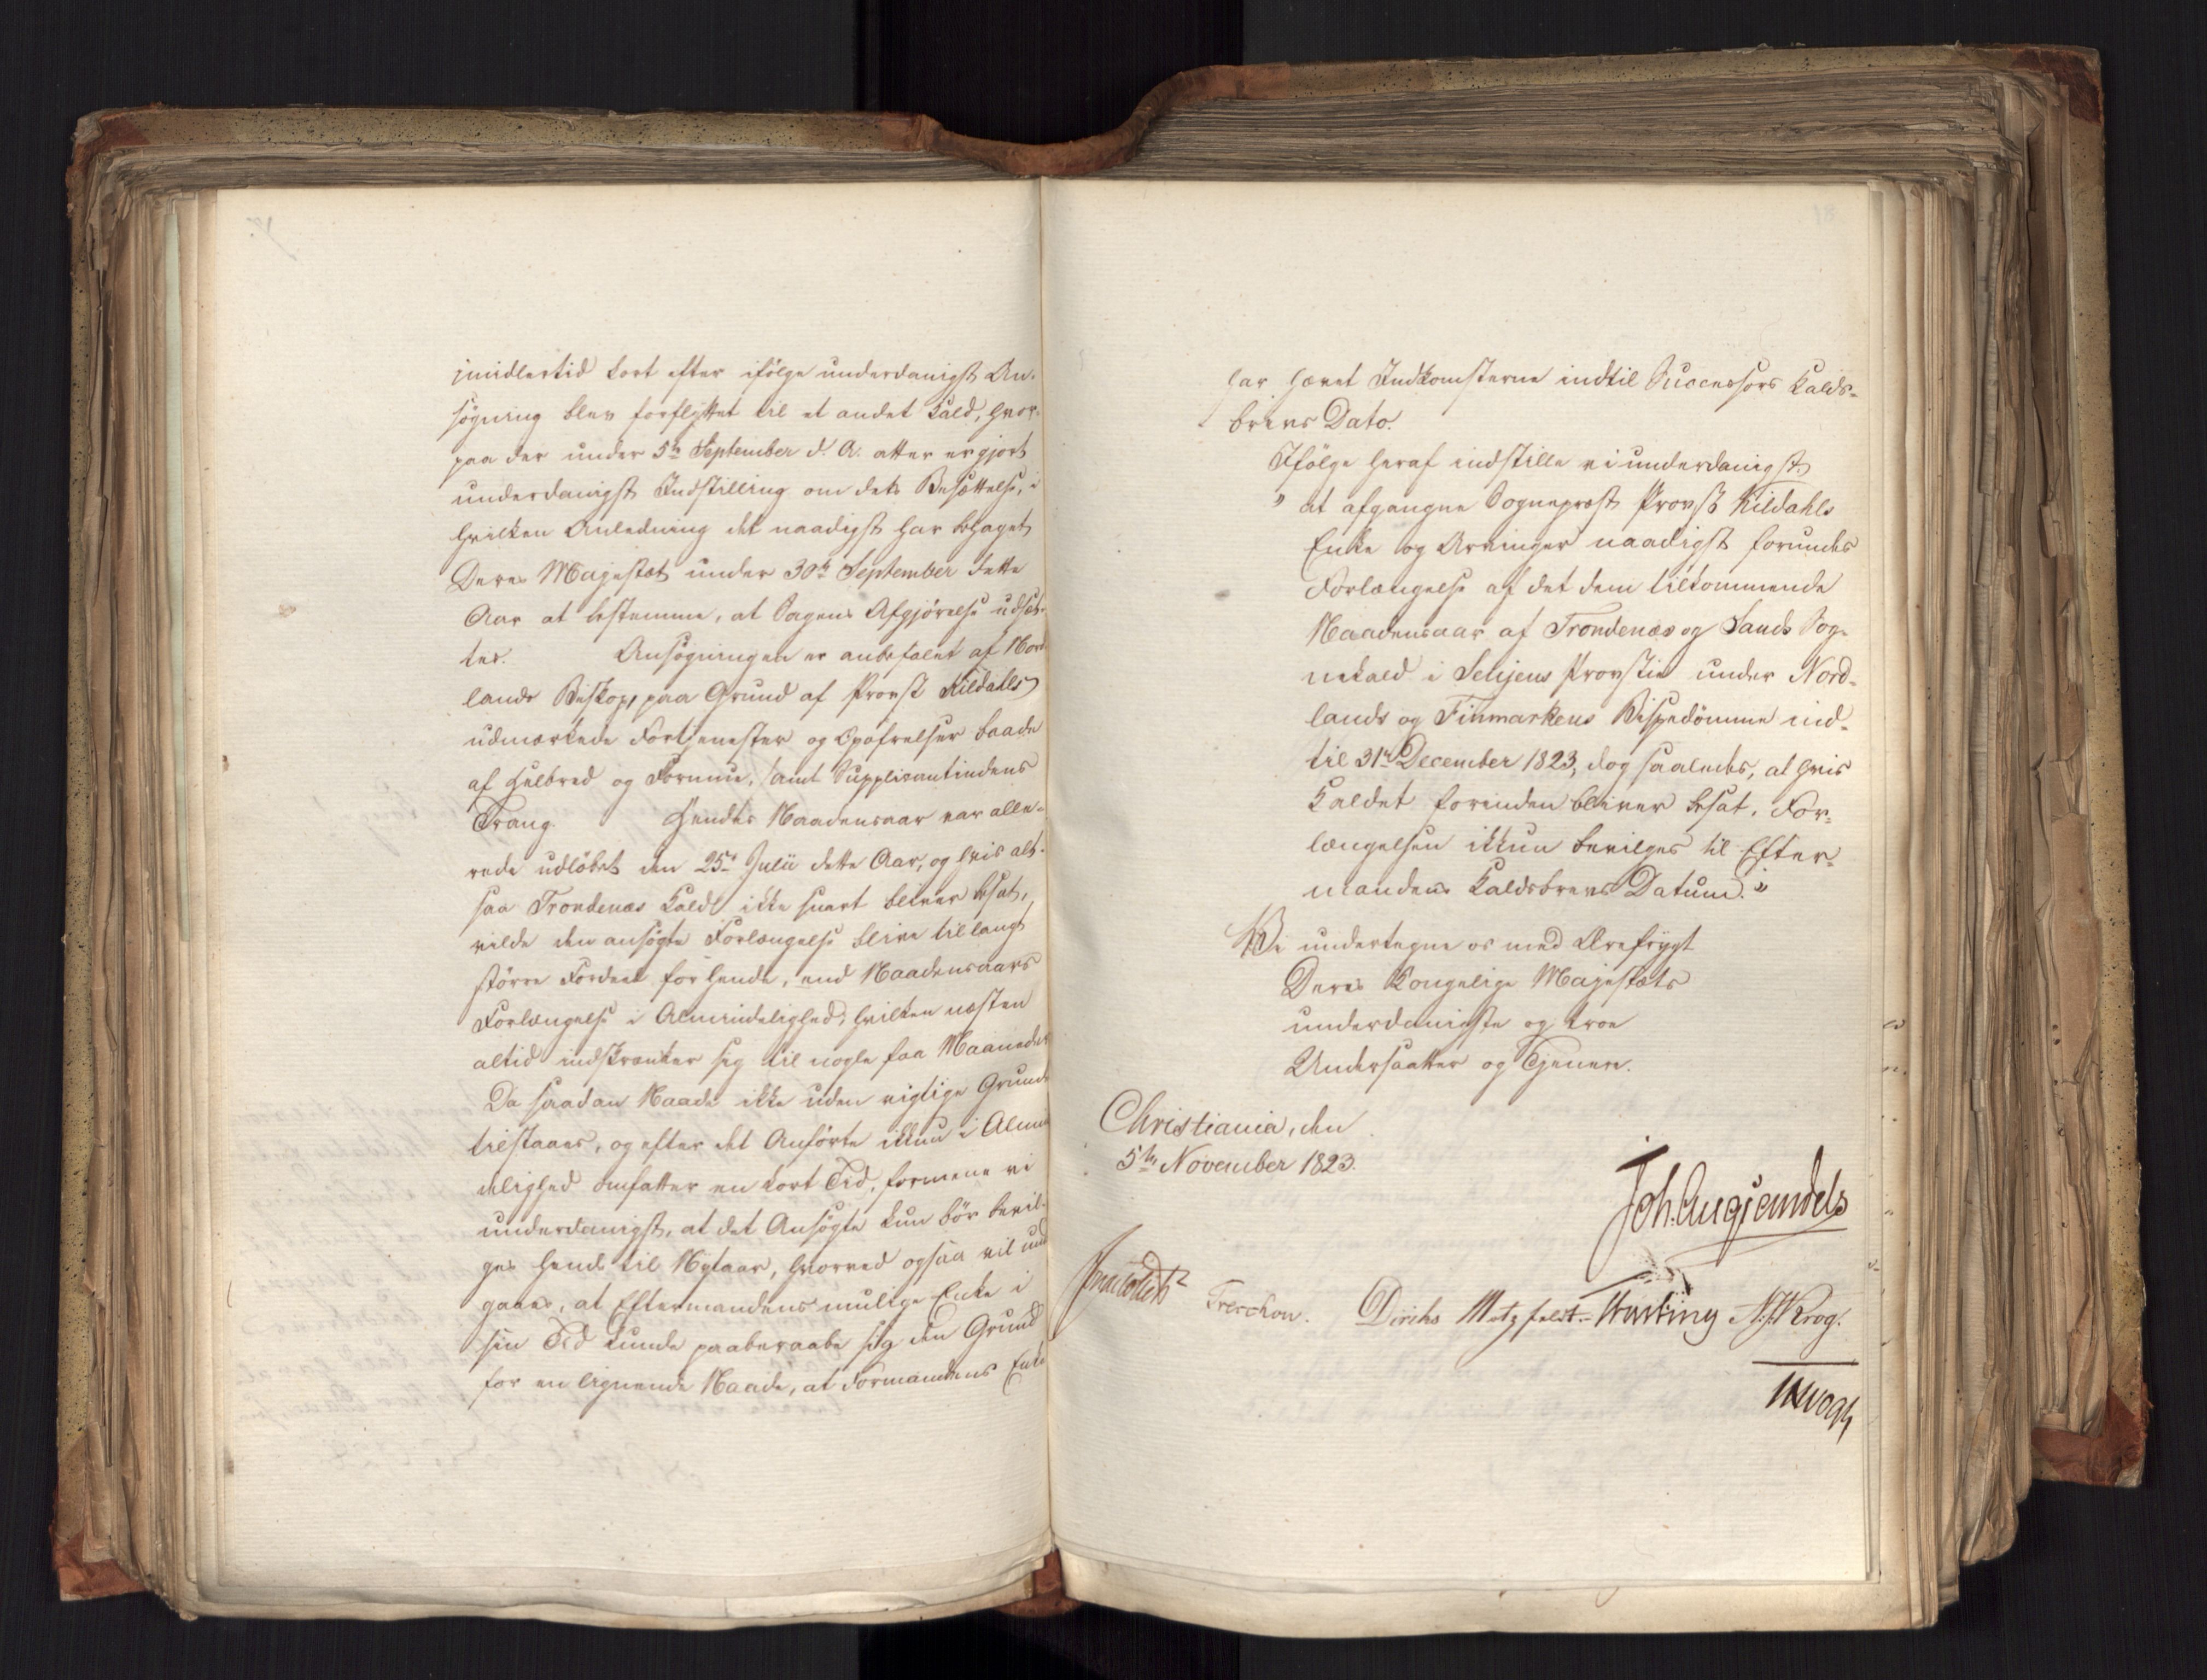 imidlertid kort efter ifølge underdanigst An-
søgning blev forflyttet til et andet Kald, hvor-
paa der under 5te September d. A. atter er gjort
underdanigst Indstilling om dets Besættelse, i
hvilken Anledning det naadigst har behaget
Deres Majestæt under 30te September dette
Aar at bestemme, at Sagens Afgjørelse udsæt-
tes. Ansøgningen er anbefalet af Nord-
lands Biskop, paa Grund af Provst Kildahls
udmærkede Fortjenester og Opofrelser baade
af Helbred og Formue, samt Supplicantindens
Trang. Hendes Naadensaar var alle-
rede udløbet den 25de Julii dette Aar, og hvis alt-
saa Trondenæs Kald ikke snart bliver besat,
vilde den ansøgte Forlængelse blive til langt
større Fordeel for hende, end Naadensaars
Forlængelse i Almindelighed, hvilken næsten
altid indskrænker sig til nogle faa Maaneder
Da saadan Naade ikke uden vigtige Grunde
tilstaaes, og efter det Anførte ikkun i Almin
delighed omfatter en kort Tid, formene vi
underdanigst, at det Ansøgte kun bør bevil-
ges hende til Nytaar, hvorved ogsaa vil und
gaaes, at Eftermandens mulige Enke i
sin Tid kunde paaberaabe sig den Grund
for en lignende Naade, at Formandens Enke
har hævet Indkomsterne indtil Successors Kalds-
brevs Dato.
Ifølge heraf indstille vi underdanigst:
" at afgangne Sognepræst Provst Kildahls
Enke og Arvinger naadigst forundes
Forlængelse af det dem tilkommende
Naadensaar af Trondenæs og Sands Sog-
nekald i Senjens Provstie under Nord-
lands og Finmarkens Bispedømme ind-
til 31te December 1823, dog saaledes, at hvis
Kaldet forinden bliver besat, For-
længelsen ikkun bevilges til Efter-
mandens Kaldsbrevs Datum."
Vi undertegne os med Ærefrygt
Deres Kongelige Majestæts
underdanigste og troe
Undersaatter og Tjenere.
Christiania, den
5te November 1823.
Joh. Aug. Sandels
Treschow. Diriks Motzfeldt. Hvilling N. J. Krog.